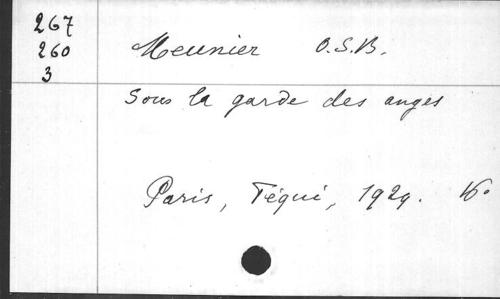 267
260
3
Meunier O.S.B.
Sous la garde des anges
Paris, Téqui, 1929. 16°